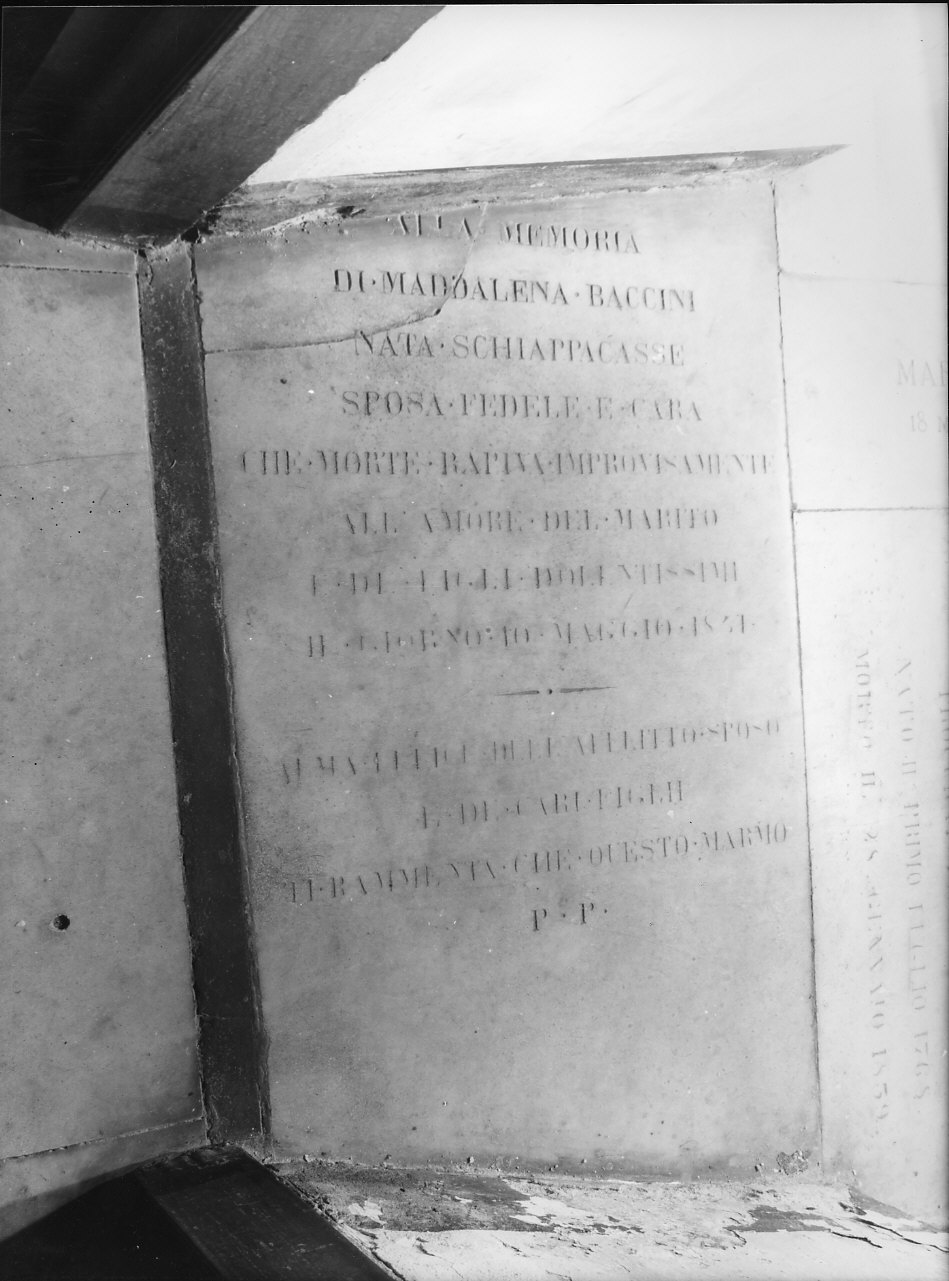 ALLA · MEMORIA
DI · MADDALENA · BACCINI
NATA · SCHIAPPACASSE
SPOSA · FEDELE · E · CARA
CHE · MORTE · RAPIVA · IMPROVISAMENTE
ALL' AMORE · DEL · MARITO
E · DE · FIGLI · DOLENTISSIMI
IL · GIORNO · 10 · MAGGIO
ALMA · FELICE · DELL' AFFLITTO · SPOSO
E · DE · CARI · FIGLII
TI · RAMMENTA · CHE · QUESTO · MARMO
P · P ·
MAR
18 M